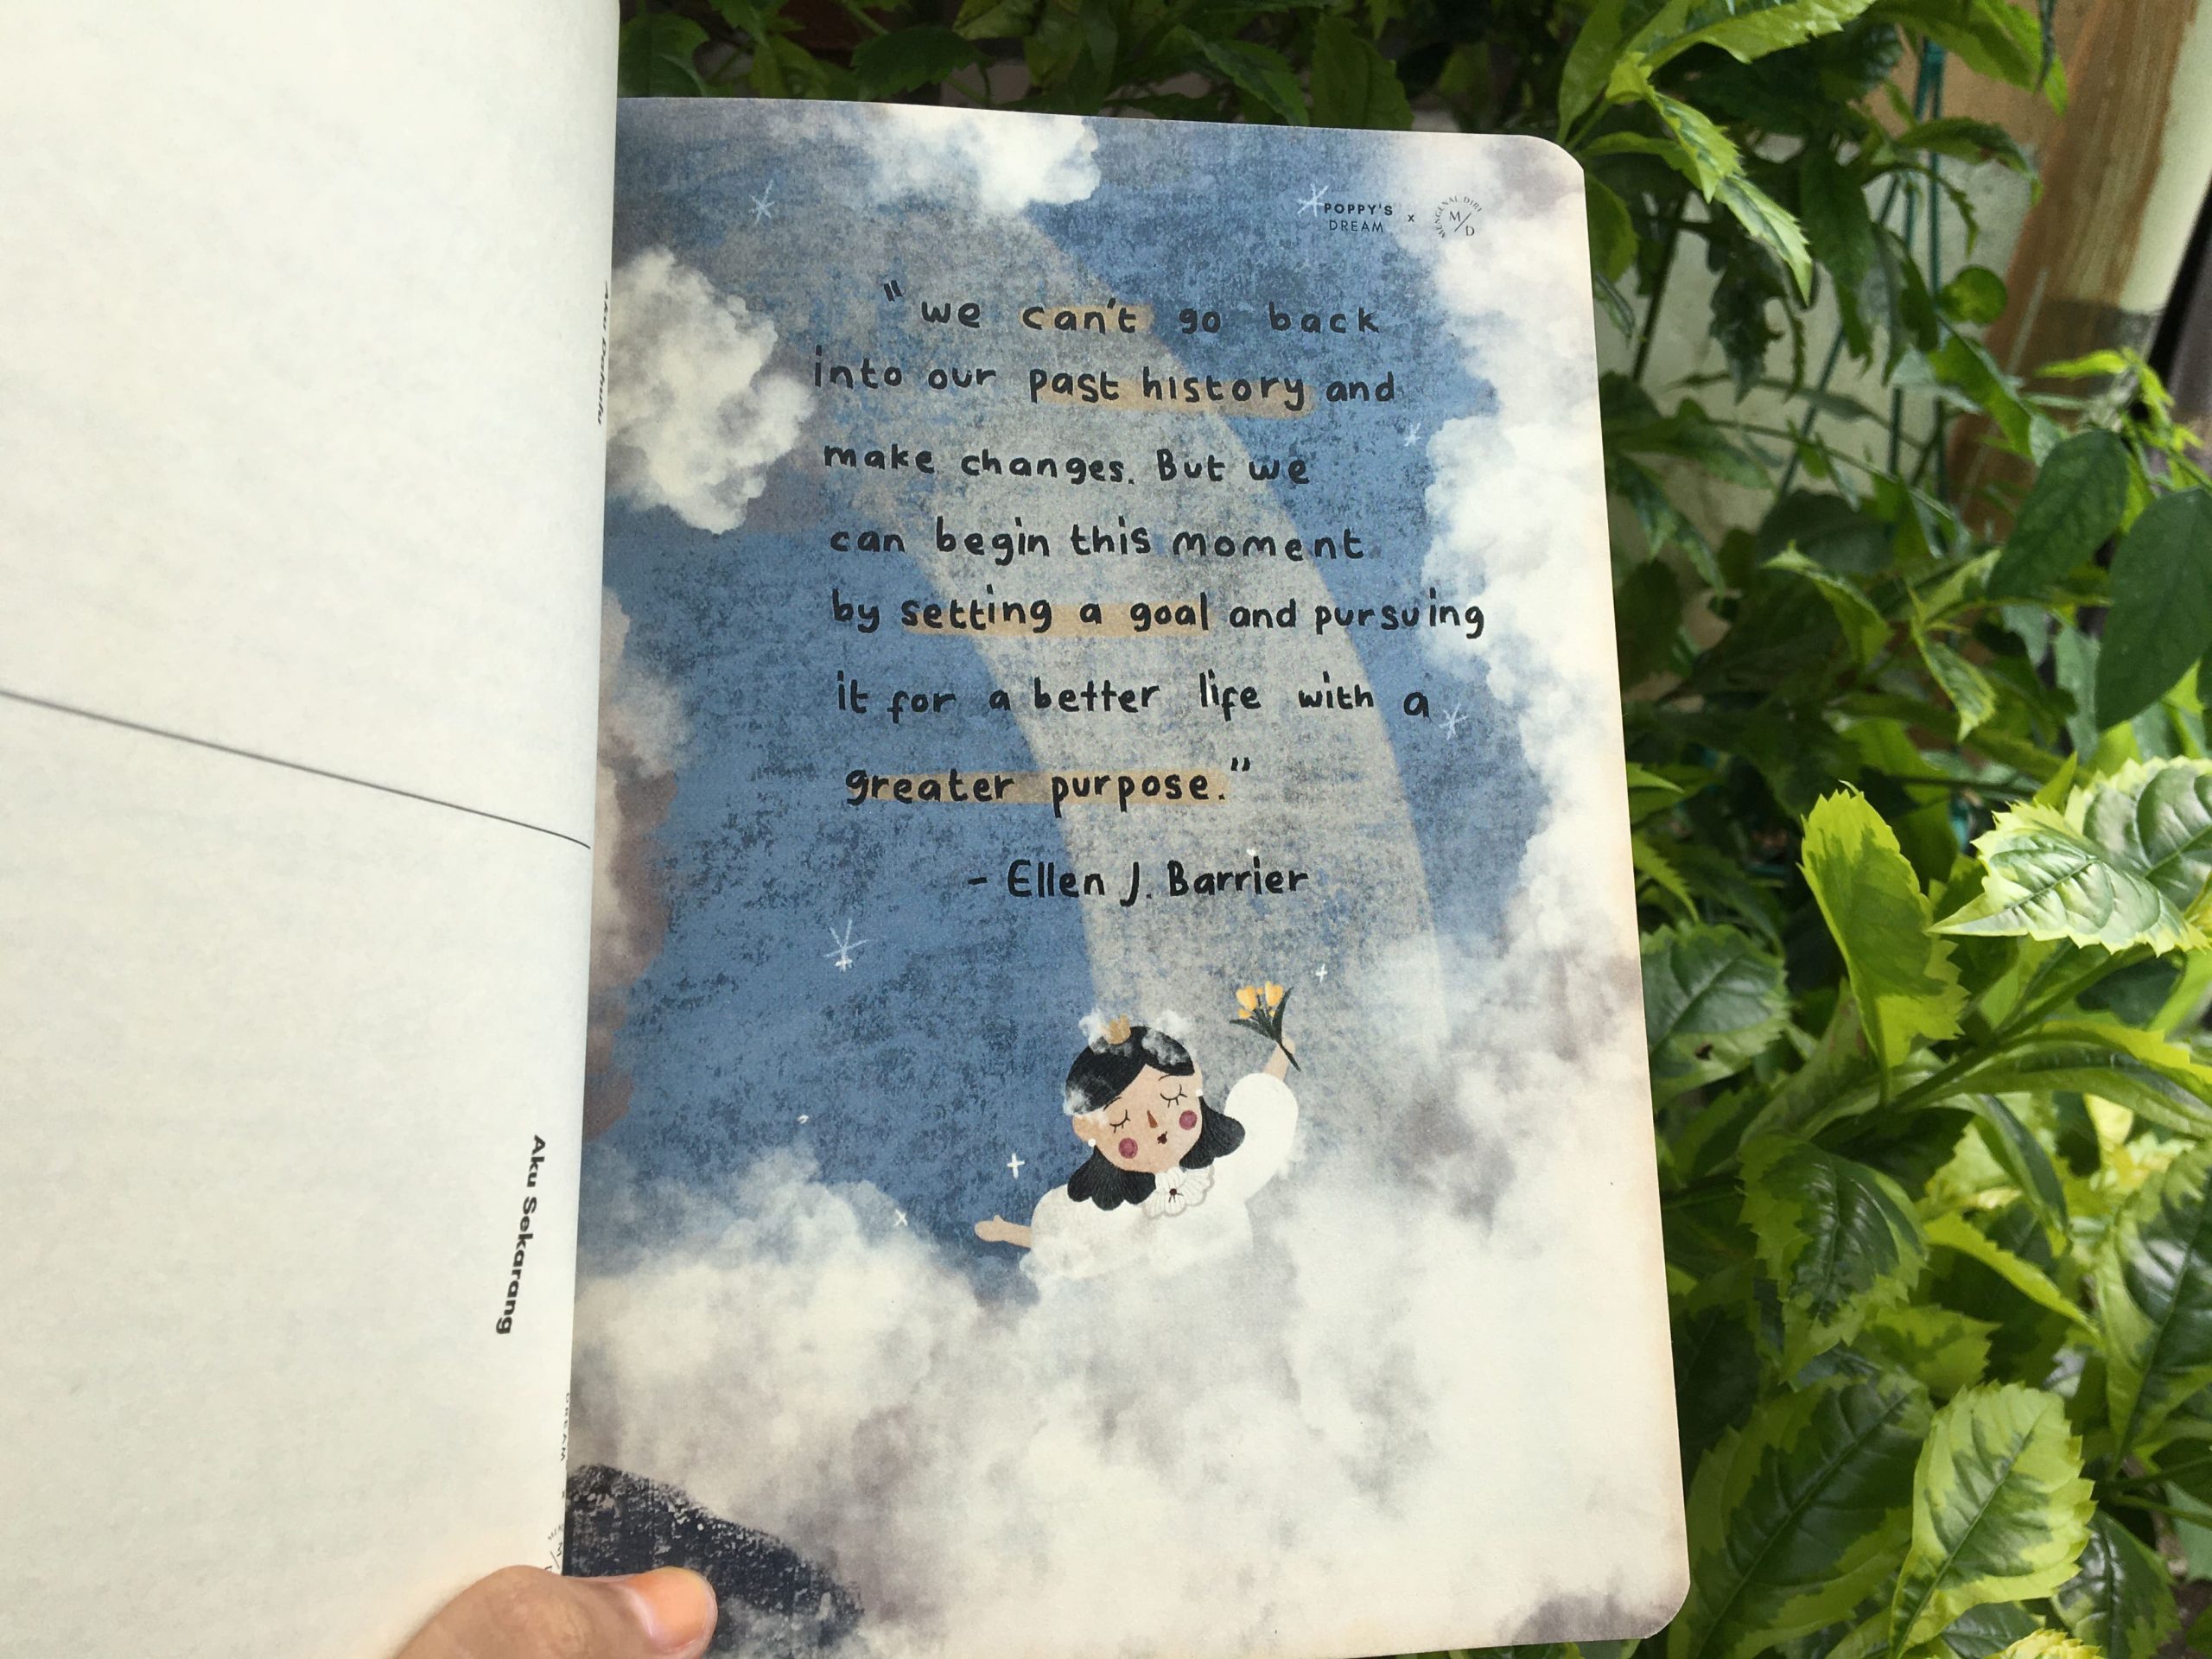 Aku Dahulu
Aku Sekarang
DREAM x
POPPY'S
DREAM
x
MENGENAL DIRI
M/D
"we can't go back
into our past history and
make changes. But we
can begin this moment
by setting a goal and pursuing
it for a better life with a
greater purpose."
- Ellen J. Barrier